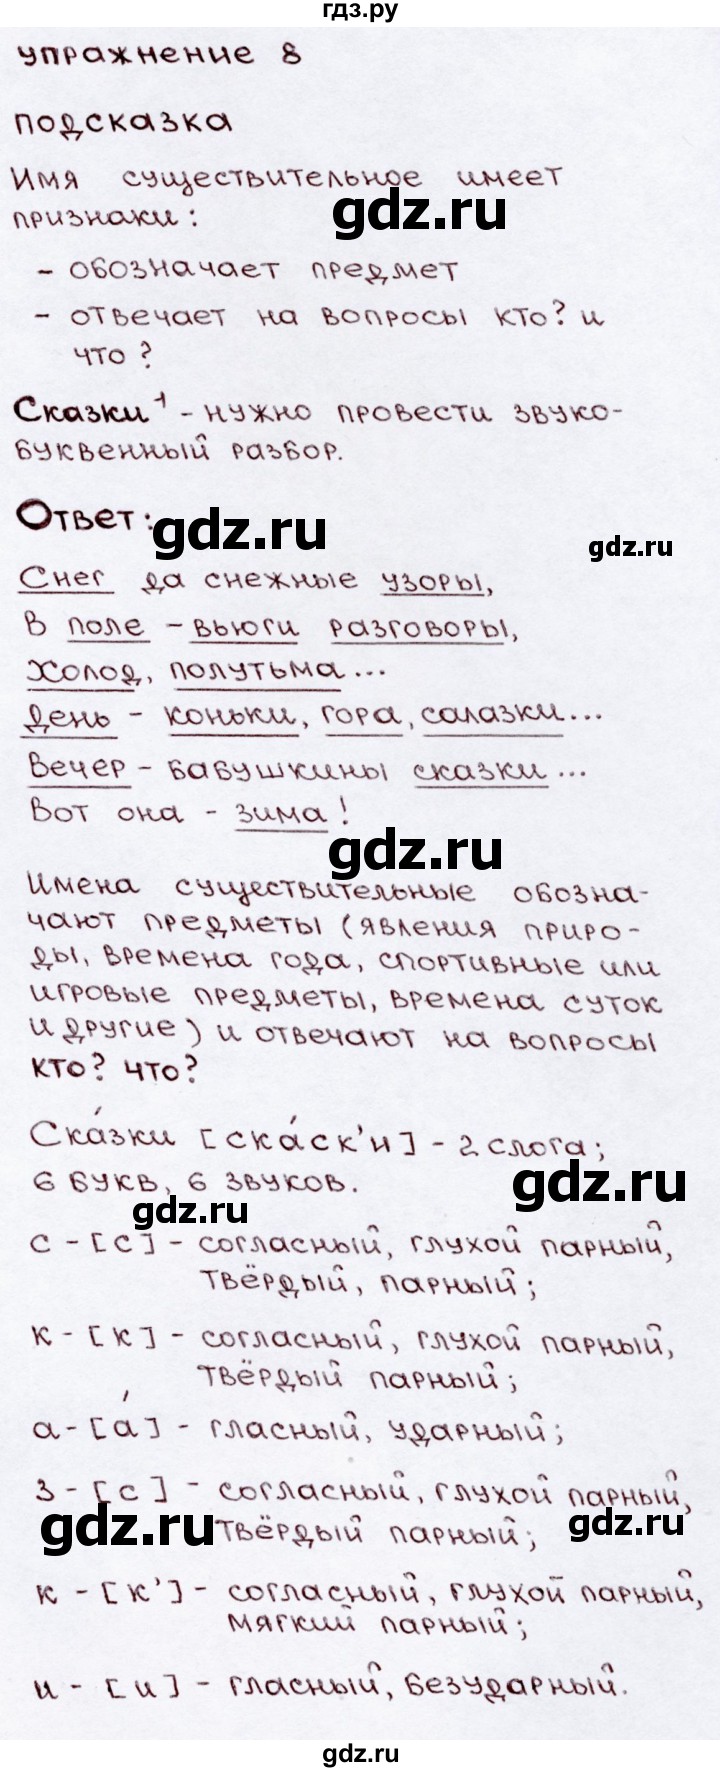 гдз.ру
упражнение 8
подсказка
Имя существительное имеет
признаки:
gdz.ru
- обозначает предмет
- отвечает на вопросы кто? и
что?
Сказки¹ - нужно провести звуко-
буквенный разбор.
Ответ:
gdz.ru
gdz.ru
Снег да снежные узоры,
В поле - вьюги разговоры,
Холод, полутьма...
День - коньки, гора, салазки...
Вечер - бабушкины сказки...
Вот она - зима!
gdz.ru
Имена существительные обозна-
чают предметы (явления приро-
ды, времена года, спортивные или
игровые предметы, времена суток
и другие) и отвечают на вопросы
кто? что?
Ска́зки [ска́ск'и] - 2 слога;
6 букв, 6 звуков.
gdz.ru
gdz.ru
с - [с] - согласный, глухой парный,
твёрдый, парный;
к - [к] - согласный, глухой парный,
твёрдый парный;
а - [а́] - гласный, ударный;
з - [с] - согласный, глухой парный,
gdz.ru
твёрдый парный;
gdz.ru
к - [к'] - согласный, глухой парный,
мягкий парный;
и - [и] - гласный, безударный.
gdz.ru